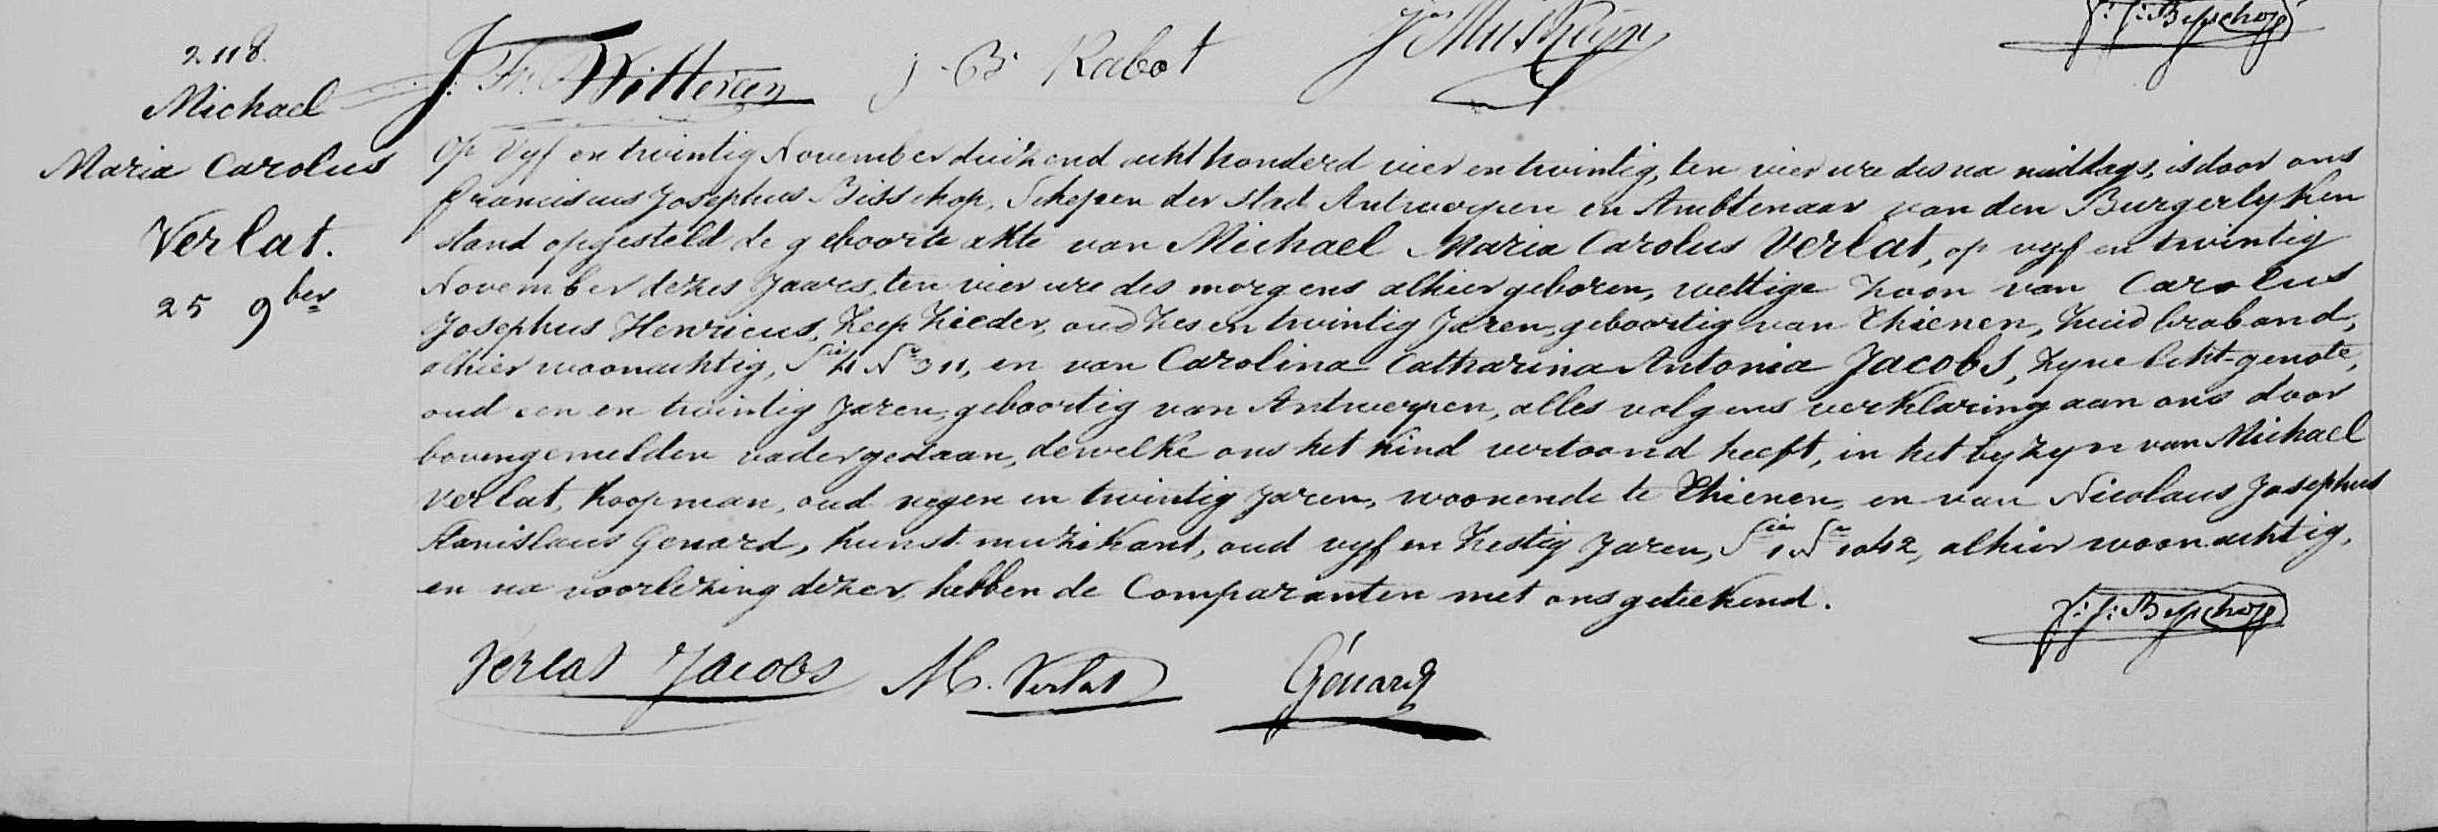 F: J: Bisschop
2118.
J. Fr. Witteven j. B. Rabot
Michael
Maria Carolus
Verlat.
25 9ber
Op Vyf en twintig November duizend acht honderd vier en twintig, ten vier ure des na middags, is door ons
Franciscus Josephus Bisschop, Schepen der stad Antwerpen en Ambtenaar van den Burgerlyken
stand opgesteld de geboorte akte van Michael Maria Carolus Verlat, op vyf en twintig
November dezes Jaars, ten vier ure des morgens alhier geboren, wettige zoon van Carolus
Josephus Henricus, Zeep Zieder, oud zes en twintig Jaren, geboortig van Thienen, Zuid braband,
alhier woonachtig, Sie 4 No 311, en van Carolina Catharina Antonia Jacobs, zyne Echt-genote,
oud een en twintig Jaren, geboortig van Antwerpen, alles volgens verklaring aan ons door
bovengemelden vader gedaan, dewelke ons het kind vertoond heeft, in het byzyn van Michael
Verlat, koopman, oud negen en twintig Jaren, woonende te Thienen, en van Nicolaus Josephus
Stanislaus Genard, kunst muzikant, oud vyf en zestig Jaren, Sie 1 No 1042, alhier woonachtig,
en na voorlezing dezer, hebben de Comparanten met ons geteekend.
F: J: Bisschop
Verlat Jacobs M. Verlat Génard